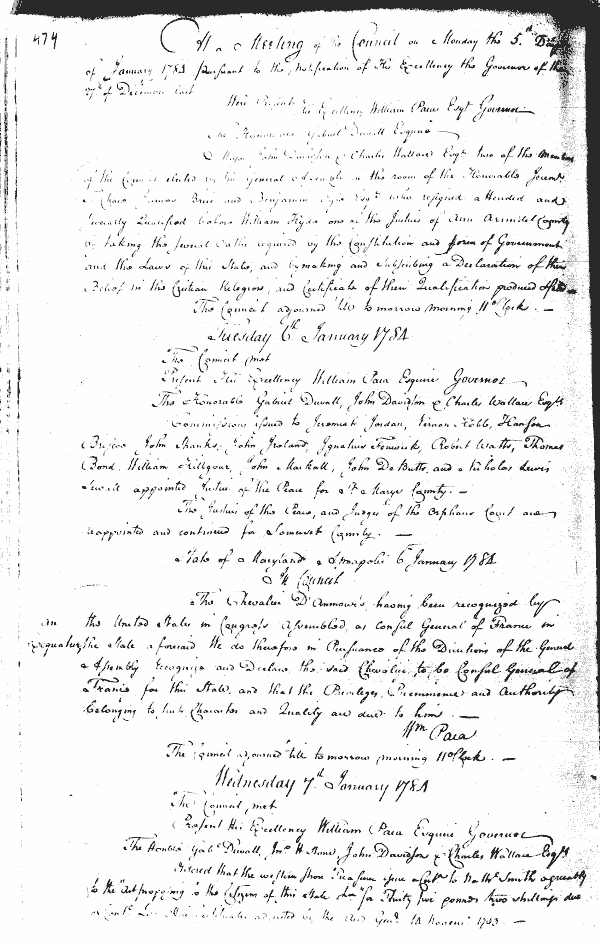 474
At a Meeting of the Council on Monday the 5.th Day
of January 1784 pursuant to the Notification of His Excellency the Governor of the
27th of December last
Were Present His Excellency William Paca Esqr Governor
The Honorable Gabriel Duvall Esquire
John Davidson & Charles Wallace Esqrs two of the Members
of the Council elected by the General Assembly in the room of the Honorable
James Brice and Benjamin who resigned attended and
severally Qualified before William Hyde one of the Justices of Ann Arundel County
by taking the several Oaths required by the Constitution and form of Government
and the Laws of this State, and by making and Subscribing a Declaration of their
Belief in the Christian Religion, and Certificate of their Qualification produced
The Council adjourned till to morrow morning 11 oClock. —
Tuesday 6th January 1784
The Council met
Present His Excellency William Paca Esquire Governor
The Honorable Gabriel Duvall, John Davidson & Charles Wallace Esqrs
Commissions issued to Jeremiah Jordan, Vernon Hebb, Hanson
Briscoe John Shanks, John Ireland, Ignatius Fenwick, Robert Watts, Thomas
Bond, William Killgour, John Mackall, John De Butts, and Nicholas Lewis
Sewall appointed Justices of the Peace for St Marys County. —
The Justices of the Peace, and Judges of the Orphans Court are
reappointed and continued for Somerset County. —
State of Maryland Annapolis 6 January 1784
In Council
The Chevalier D'Anmours, having been recognized by
an the United States in Congress Assembled, as Consul General of France in
Exequatur the State aforesaid We do therefore in Pursuance of the Directions of the General
Assembly recognize and Declare, the said Chevalier, to be Consul General of
France for this State, and that the Privileges, Preeminence and Authority
belonging to such Character and Quality are due to him. —
Wm Paca
The Council adjourned till to morrow morning 11 oClock. —
Wednesday 7th January 1784
The Council, met
Present His Excellency William Paca Esquire Governor
The Honble Gabl Duvall, Jno H Stone, John Davidson & Charles Wallace Esqrs
Ordered that the western Shore Treasurer to Smith agreeably
to the Act to the Citizens of this State for Thirty five pounds two shillings due
adjusted by the Aud Genl 14 Novemr 1783 —